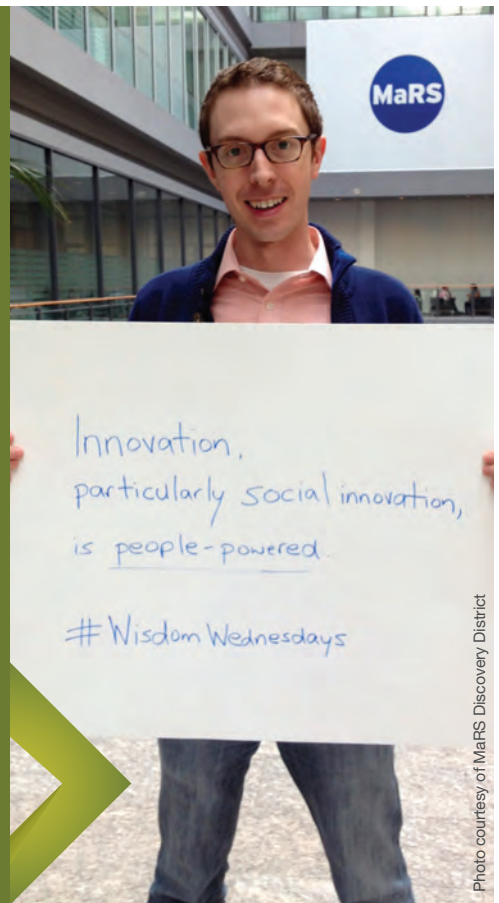 MaRS
Innovation,
particularly social innovation,
is people-powered.
#WisdomWednesdays
Photo courtesy of MaRS Discovery District